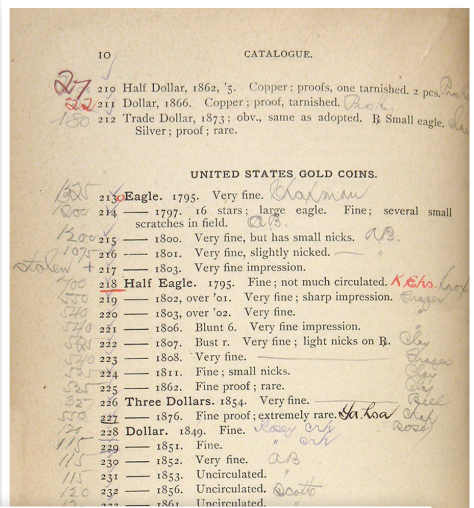 10 CATALOGUE.
27 210 Half Dollar, 1862, '5. Copper; proofs, one tarnished. 2 pcs.
22 211 Dollar, 1866. Copper; proof, tarnished.
180 212 Trade Dollar, 1873; obv., same as adopted. ℞ Small eagle.
Silver; proof; rare.
UNITED STATES GOLD COINS.
213 Eagle. 1795. Very fine. Chapman
1200 214 —— 1797. 16 stars; large eagle. Fine; several small
scratches in field. AB.
1200 215 —— 1800. Very fine, but has small nicks. AB.
1075 216 —— 1801. Very fine, slightly nicked. —
stolen + 217 —— 1803. Very fine impression.
700 218 Half Eagle. 1795. Fine; not much circulated.
550 219 —— 1802, over '01. Very fine; sharp impression.
540 220 —— 1803, over '02. Very fine.
540 221 —— 1806. Blunt 6. Very fine impression.
222 —— 1807. Bust r. Very fine; light nicks on ℞. Clay
223 —— 1808. Very fine.
525 224 —— 1811. Fine; small nicks. Clay
525 225 —— 1862. Fine proof; rare. Clay
327 226 Three Dollars. 1854. Very fine. Bell
550 227 —— 1876. Fine proof; extremely rare.
228 Dollar. 1849. Fine.
115 229 —— 1851. Fine. "
115 230 —— 1852. Very fine. AB
115 231 —— 1853. Uncirculated. "
120 232 —— 1856. Uncirculated. Scott
—— 1861. Uncirculated.